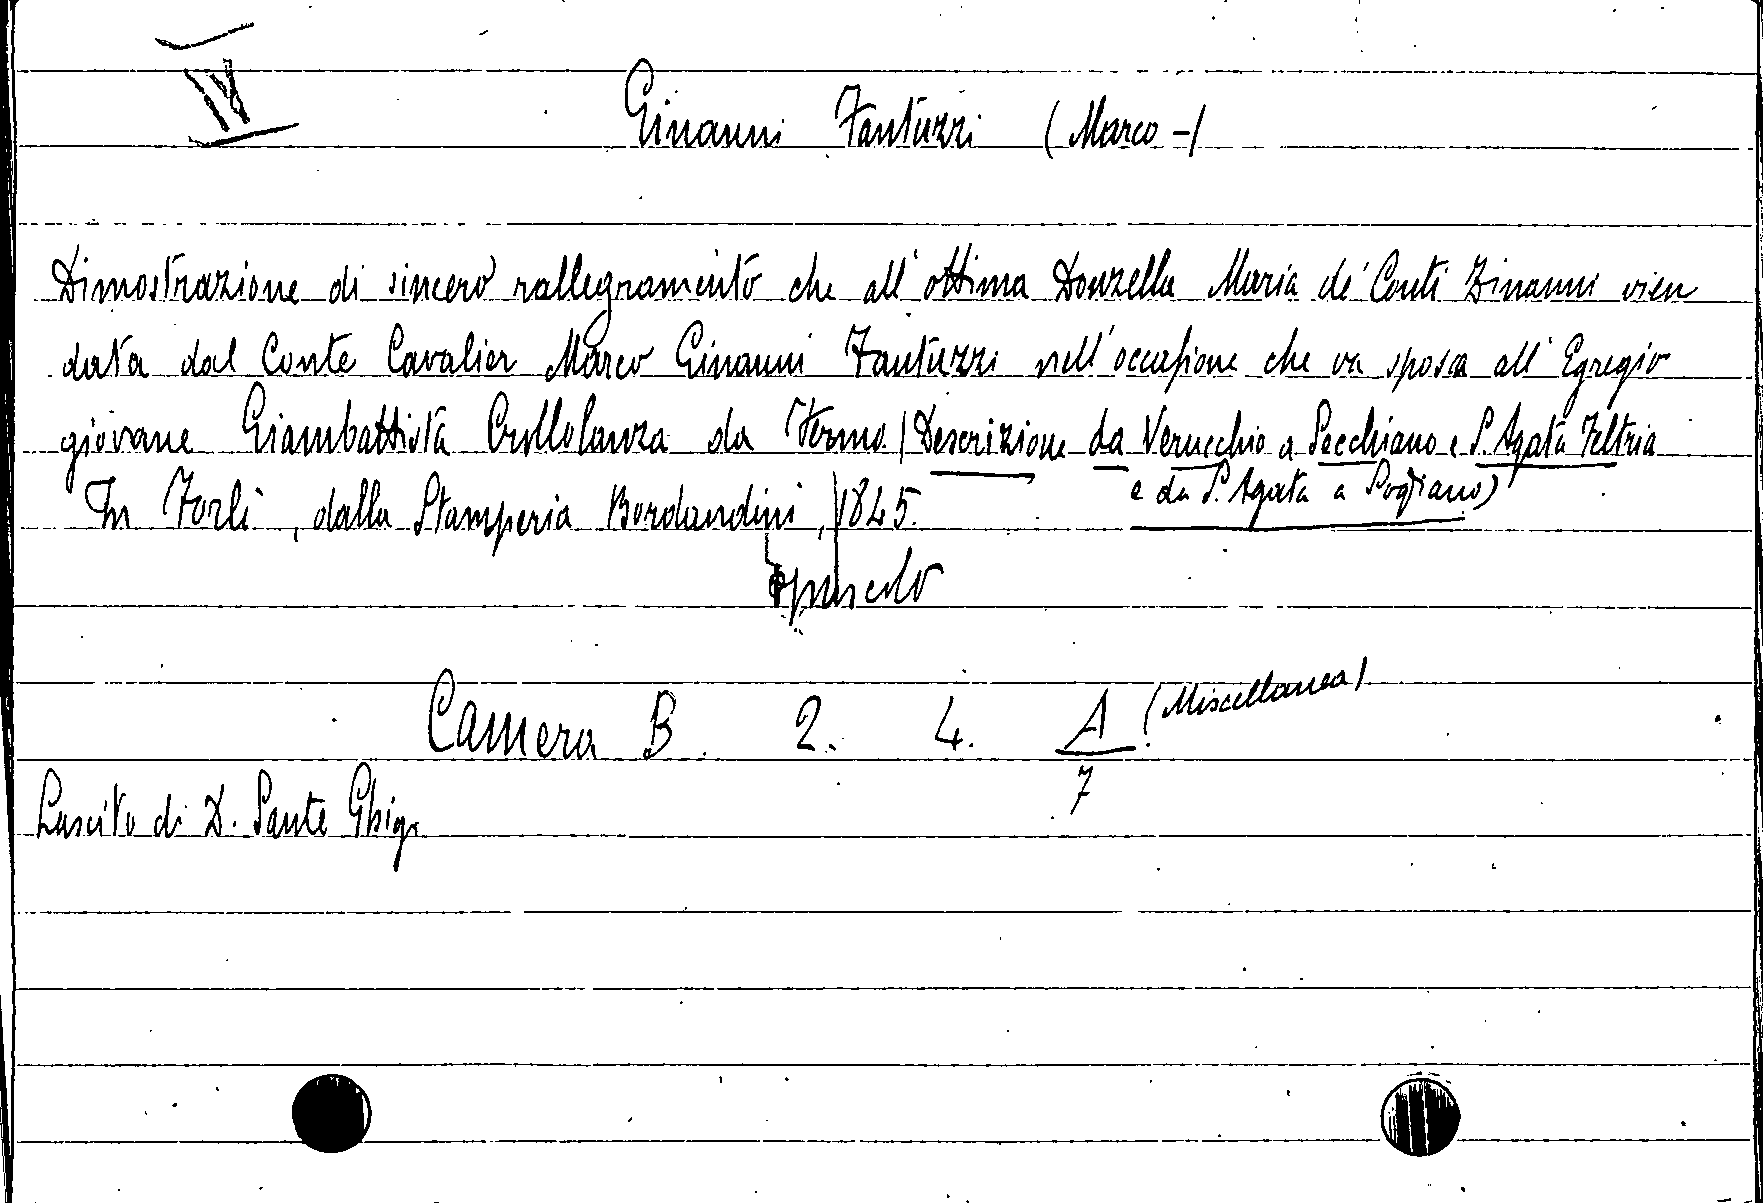 IV
Ginanni Fantuzzi (Marco -)
Dimostrazione di sincero rallegramento che all' ottima Donzella Maria de' Conti Zinanni vien
data dal Conte Cavalier Marco Ginanni Fantuzzi nell'occasione che va sposa all' Egregio
giovane Giambattista Crollolanza da Fermo (Descrizione da Verucchio a Secchiano e S. Agata Feltria
e da S. Agata a Pogliano)
In Forlì, dalla Stamperia Bordandini, 1845.
opuscolo
Camera B. 2. 4. A (Miscellanea)
7
Lascito di D. Sante Ghigi